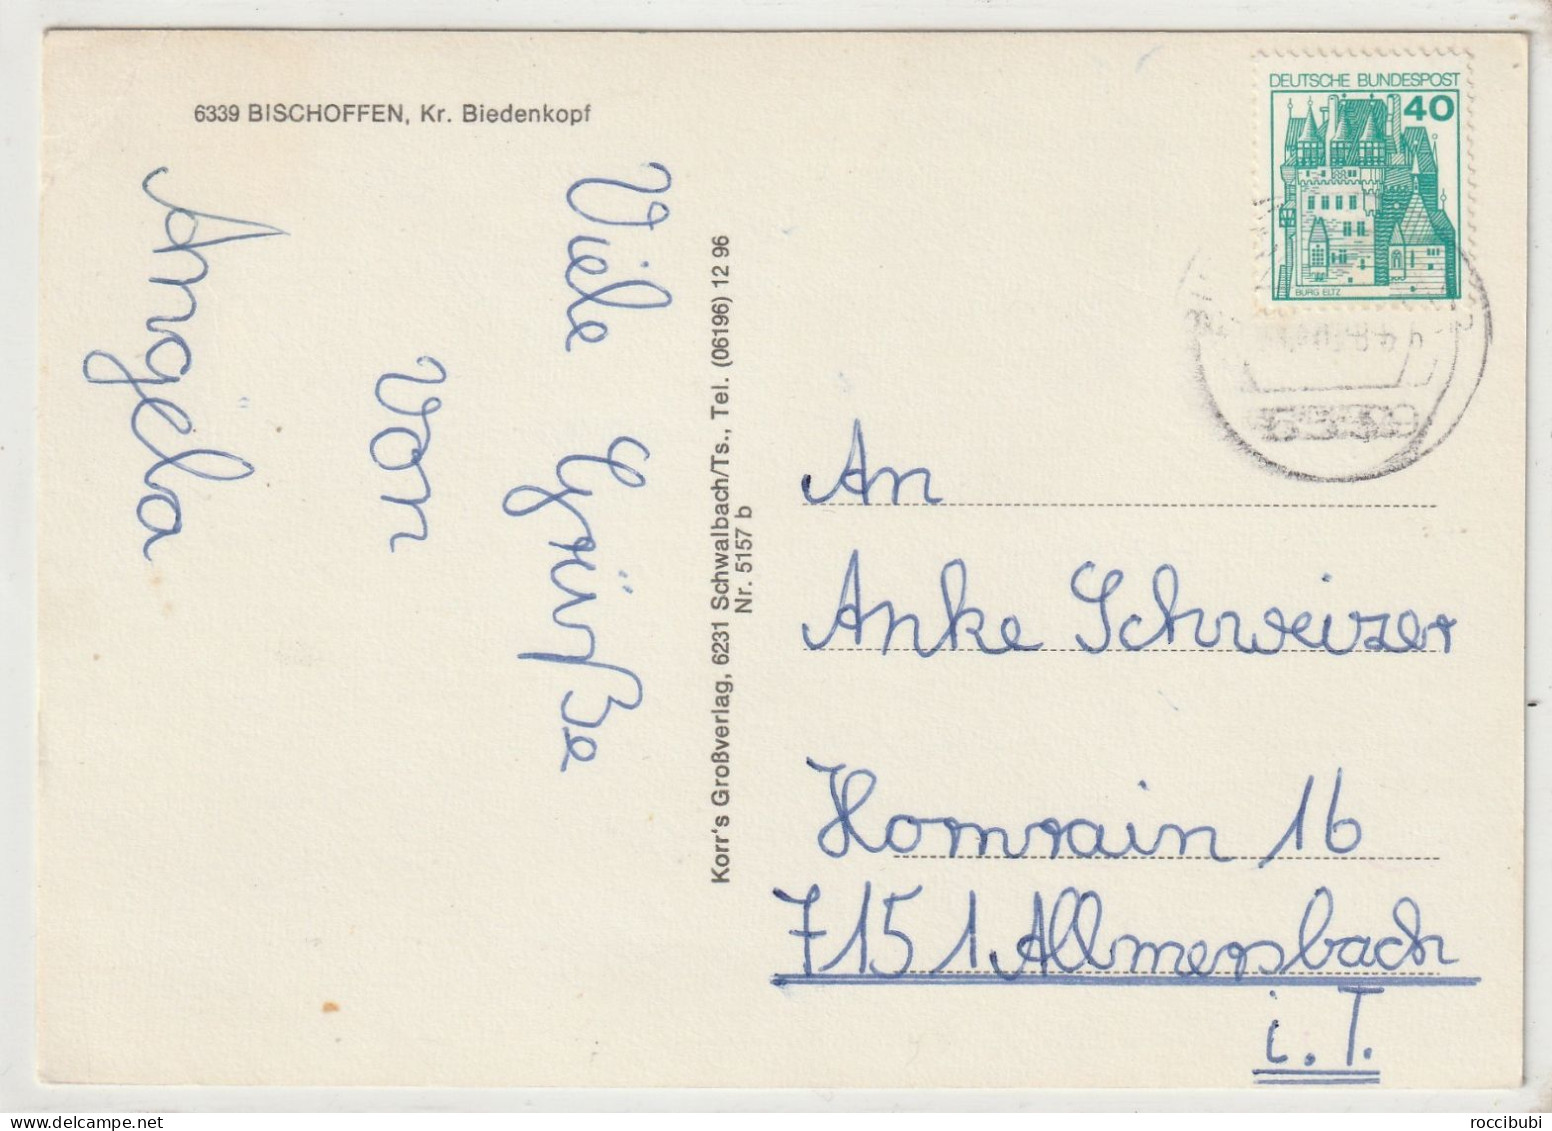 6339 BISCHOFFEN, Kr. Biedenkopf
Viele Grüße
von
Angela
Korr's Großverlag, 6231 Schwalbach/Ts., Tel. (06196) 12 96
Nr. 5157 b
DEUTSCHE BUNDESPOST
40
BURG ELTZ
An
Anke Schweizer
Homrain 16
7151 Allmersbach
i. T.
roccibubi